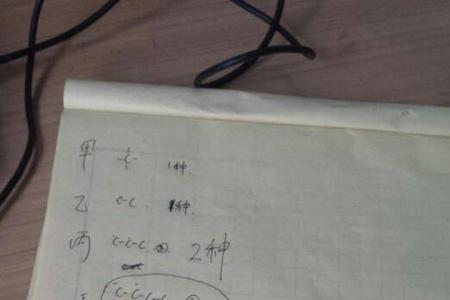 甲 -C- 1种.
乙 C-C. 1种.
丙 C-C-C ② 2种
C-C-C-C